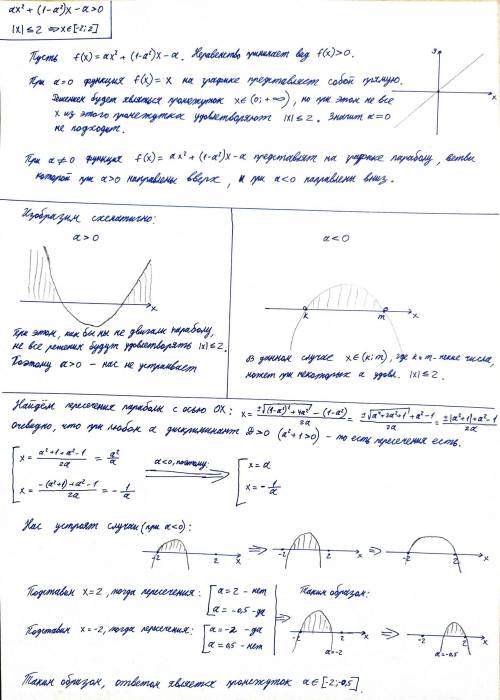 ax² + (1-a²)x - a > 0
|x| ≤ 2 ⇒ x∈[-2;2]
Пусть f(x) = ax² + (1-a²)x - a. Неравенство принимает вид f(x) > 0.
При a=0 функция f(x) = x на графике представляет собой прямую.
Решением будет являться промежуток x∈(0;+∞), но при этом не все
x из этого промежутка удовлетворяют |x| ≤ 2. Значит a=0
не подходит.
y
x
При a≠0 функция f(x) = ax² + (1-a²)x - a представляет на графике параболу, ветви
которой при a>0 направлены вверх, и при a<0 направлены вниз.
Изобразим схематично:
a > 0
x
При этом, как бы мы не двигали параболу,
не все решения будут удовлетворять |x| ≤ 2.
Поэтому a>0 - нас не устраивает
a < 0
k m x
В данном случае x∈(k;m), где k и m - некие числа,
может при некоторых a удовл. |x| ≤ 2.
Найдём пересечения параболы с осью OX: x = ±√((1-a²)² + 4a²) - (1-a²) / 2a = ±√(a⁴+2a²+1) + a² - 1 / 2a = ±|a²+1| + a² - 1 / 2a
Очевидно, что при любом a дискриминант D>0 (a²+1>0) - то есть пересечения есть.
x = a²+1+a²-1 / 2a = a²/a
x = -(a²+1)+a²-1 / 2a = -1/a
a<0, поэтому:
x = a
x = -1/a
Нас устроят случаи (при a<0):
-2 2 x ⇒ -2 2 x ⇒ -2 2 x
Подставим x=2, тогда пересечения: a = 2 - нет
a = -0,5 - да
Подставим x=-2, тогда пересечения: a = -2 - да
a = 0,5 - нет
Таким образом:
-2 2 x
a=-2
-2 2 x
a=-0,5
Таким образом, ответом является промежуток a∈[-2;-0,5].